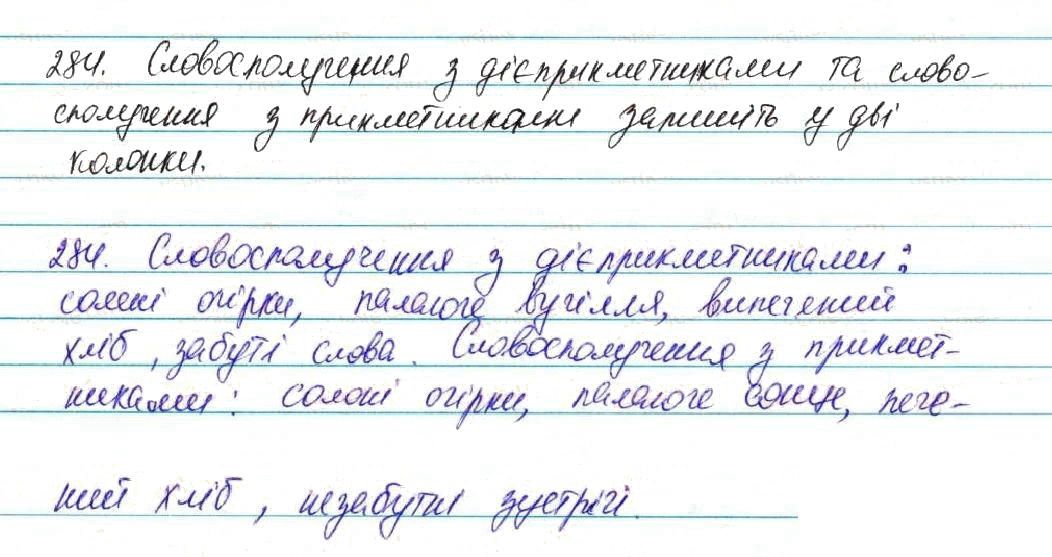 284. Словосполучення з дієприкметниками та слово-
сполучення з прикметниками запишіть у дві
колонки.
284. Словосполучення з дієприкметниками:
солені огірки, палаюче вугілля, випечений
хліб, забуті слова. Словосполучення з прикмет-
никами: солоні огірки, палаюче сонце, пече-
ний хліб, незабутні зустрічі.